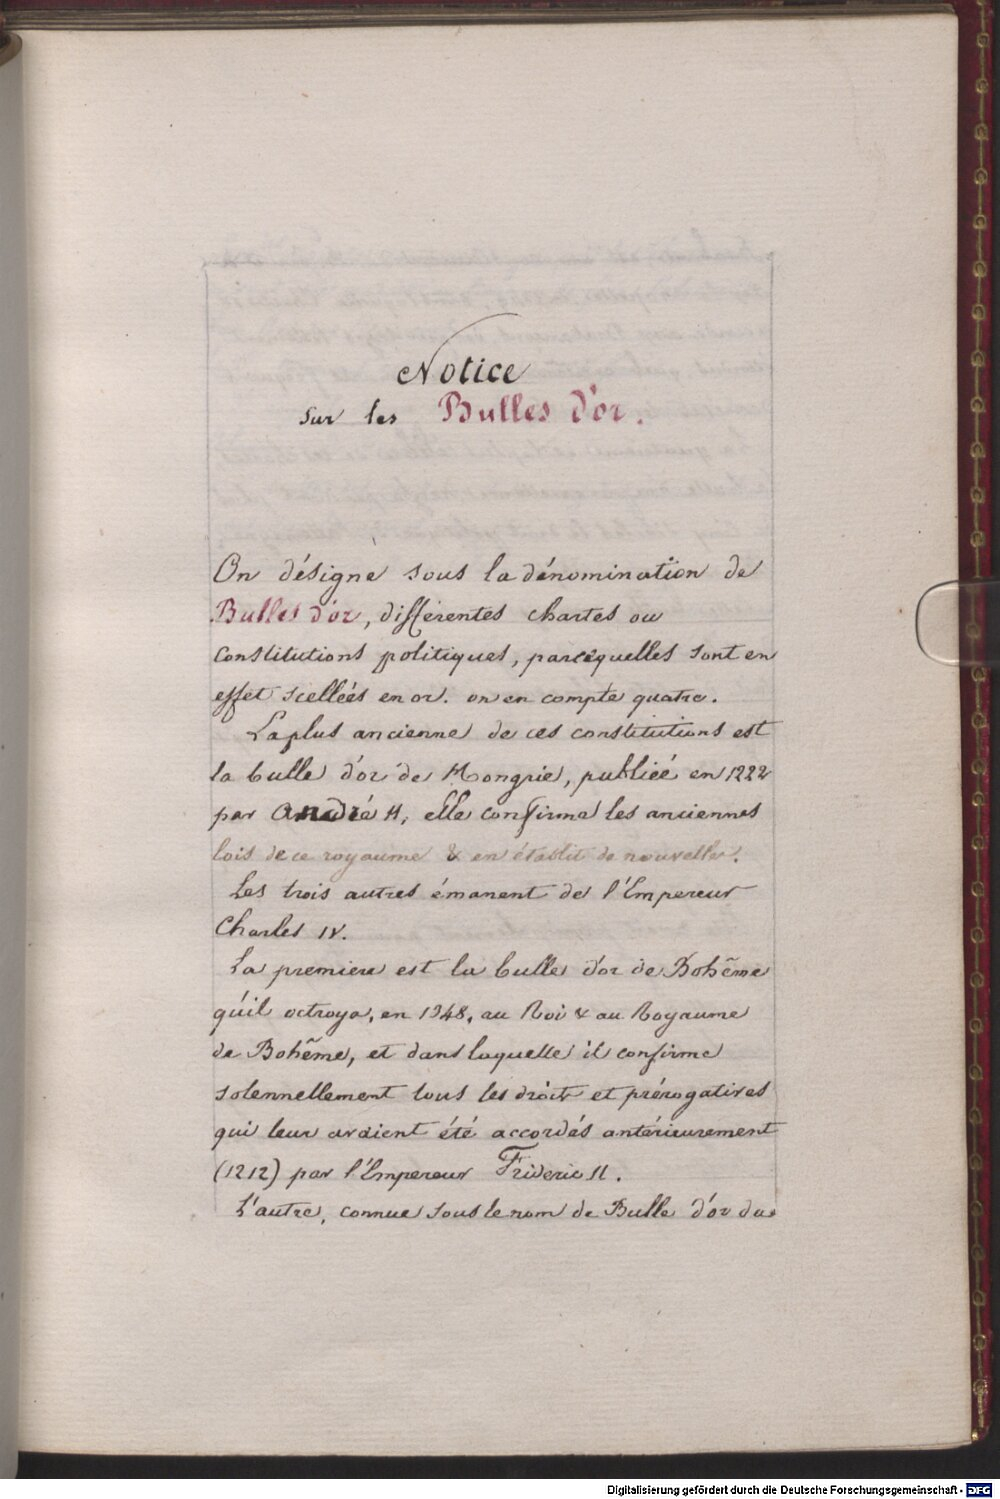 Notice
sur les Bulles d'or.
On désigne sous la dénomination de
Bulles d'or, différentes chartes ou
constitutions politiques, parcequelles sont en
effet scellées en or. on en compte quatre.
La plus ancienne de ces constitutions est
la bulle d'or de Hongrie, publiée en 1222
par André II, elle confirma les anciennes
lois de ce royaume & en établit de nouvelles.
Les trois autres émanent de l'Empereur
Charles IV.
La premiere est la bulle d'or de Bohême
qu'il octroya, en 1348, au Roi & au Royaume
de Bohême, et dans laquelle il confirme
solennellement tous les droits et prérogatives
qui leur avaient été accordés antérieurement
(1212) par l'Empereur Frideric II.
L'autre, connue sous le nom de Bulle d'or du
Digitalisierung gefördert durch die Deutsche Forschungsgemeinschaft - DFG